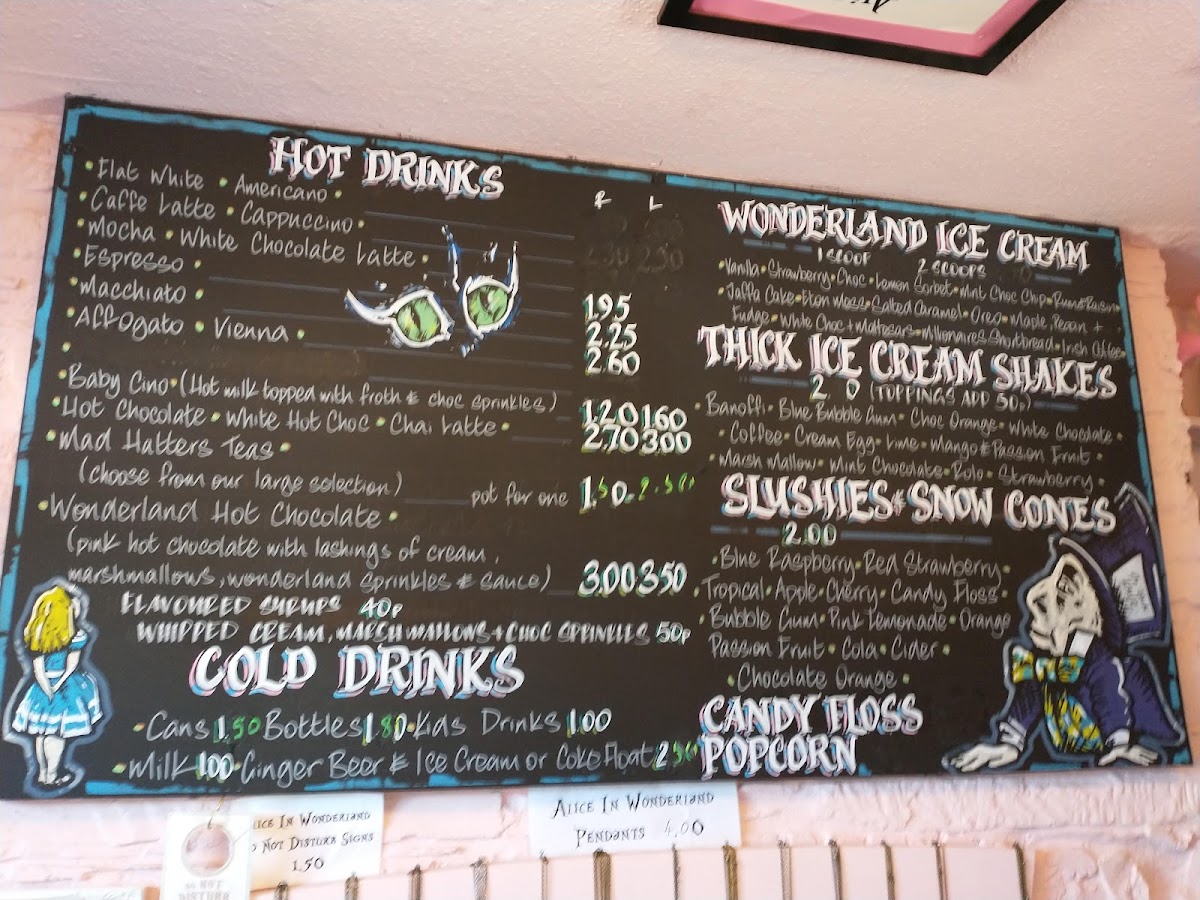 HOT DRINKS
R L
• Flat White • Americano •
• Caffe Latte • Cappuccino •
• Mocha • White Chocolate Latte •
• Espresso • 1.95
• Macchiato • 2.25
• Affogato • Vienna • 2.60
• Baby Cino • (Hot milk topped with froth & choc sprinkles) 1.20 1.60
• Hot Chocolate • White Hot Choc • Chai Latte • 2.70 3.00
• Mad Hatters Teas •
(choose from our large selection) pot for one
• Wonderland Hot Chocolate •
(pink hot chocolate with lashings of cream,
marshmallows, wonderland sprinkles & sauce) 3.00 3.50
FLAVOURED SYRUPS 40p
WHIPPED CREAM, MARSHMALLOWS + CHOC SPRINKLES 50p
COLD DRINKS
• Cans 1.50 Bottles 1.80 • Kids Drinks 1.00
• Milk 1.00 • Ginger Beer & Ice Cream or Coke Float
WONDERLAND ICE CREAM
1 SCOOP 2 SCOOPS
• Vanilla • Strawberry • Choc • Lemon Sorbet • Mint Choc Chip • Rum & Raisin •
• Jaffa Cake • Eton Mess • Salted Caramel • Oreo • Maple, Pecan +
Fudge • White Choc + Maltesars • Millionaires Shortbread • Irish Coffee •
THICK ICE CREAM SHAKES
(TOPPINGS ADD 50p)
• Banoffi • Blue Bubble Gum • Choc Orange • White Chocolate •
• Coffee • Cream Egg • Lime • Mango & Passion Fruit •
• Marsh Mallow • Mint Chocolate • Rolo • Strawberry •
SLUSHIES & SNOW CONES
2.00
• Blue Raspberry • Red Strawberry •
• Tropical • Apple • Cherry • Candy Floss •
• Bubble Gum • Pink Lemonade • Orange
Passion Fruit • Cola • Cider •
• Chocolate Orange •
CANDY FLOSS
POPCORN
LICE IN WONDERLAND
NOT DISTURB SIGNS
1.50
DO NOT
DISTURB
ALICE IN WONDERLAND
PENDANTS 4.00